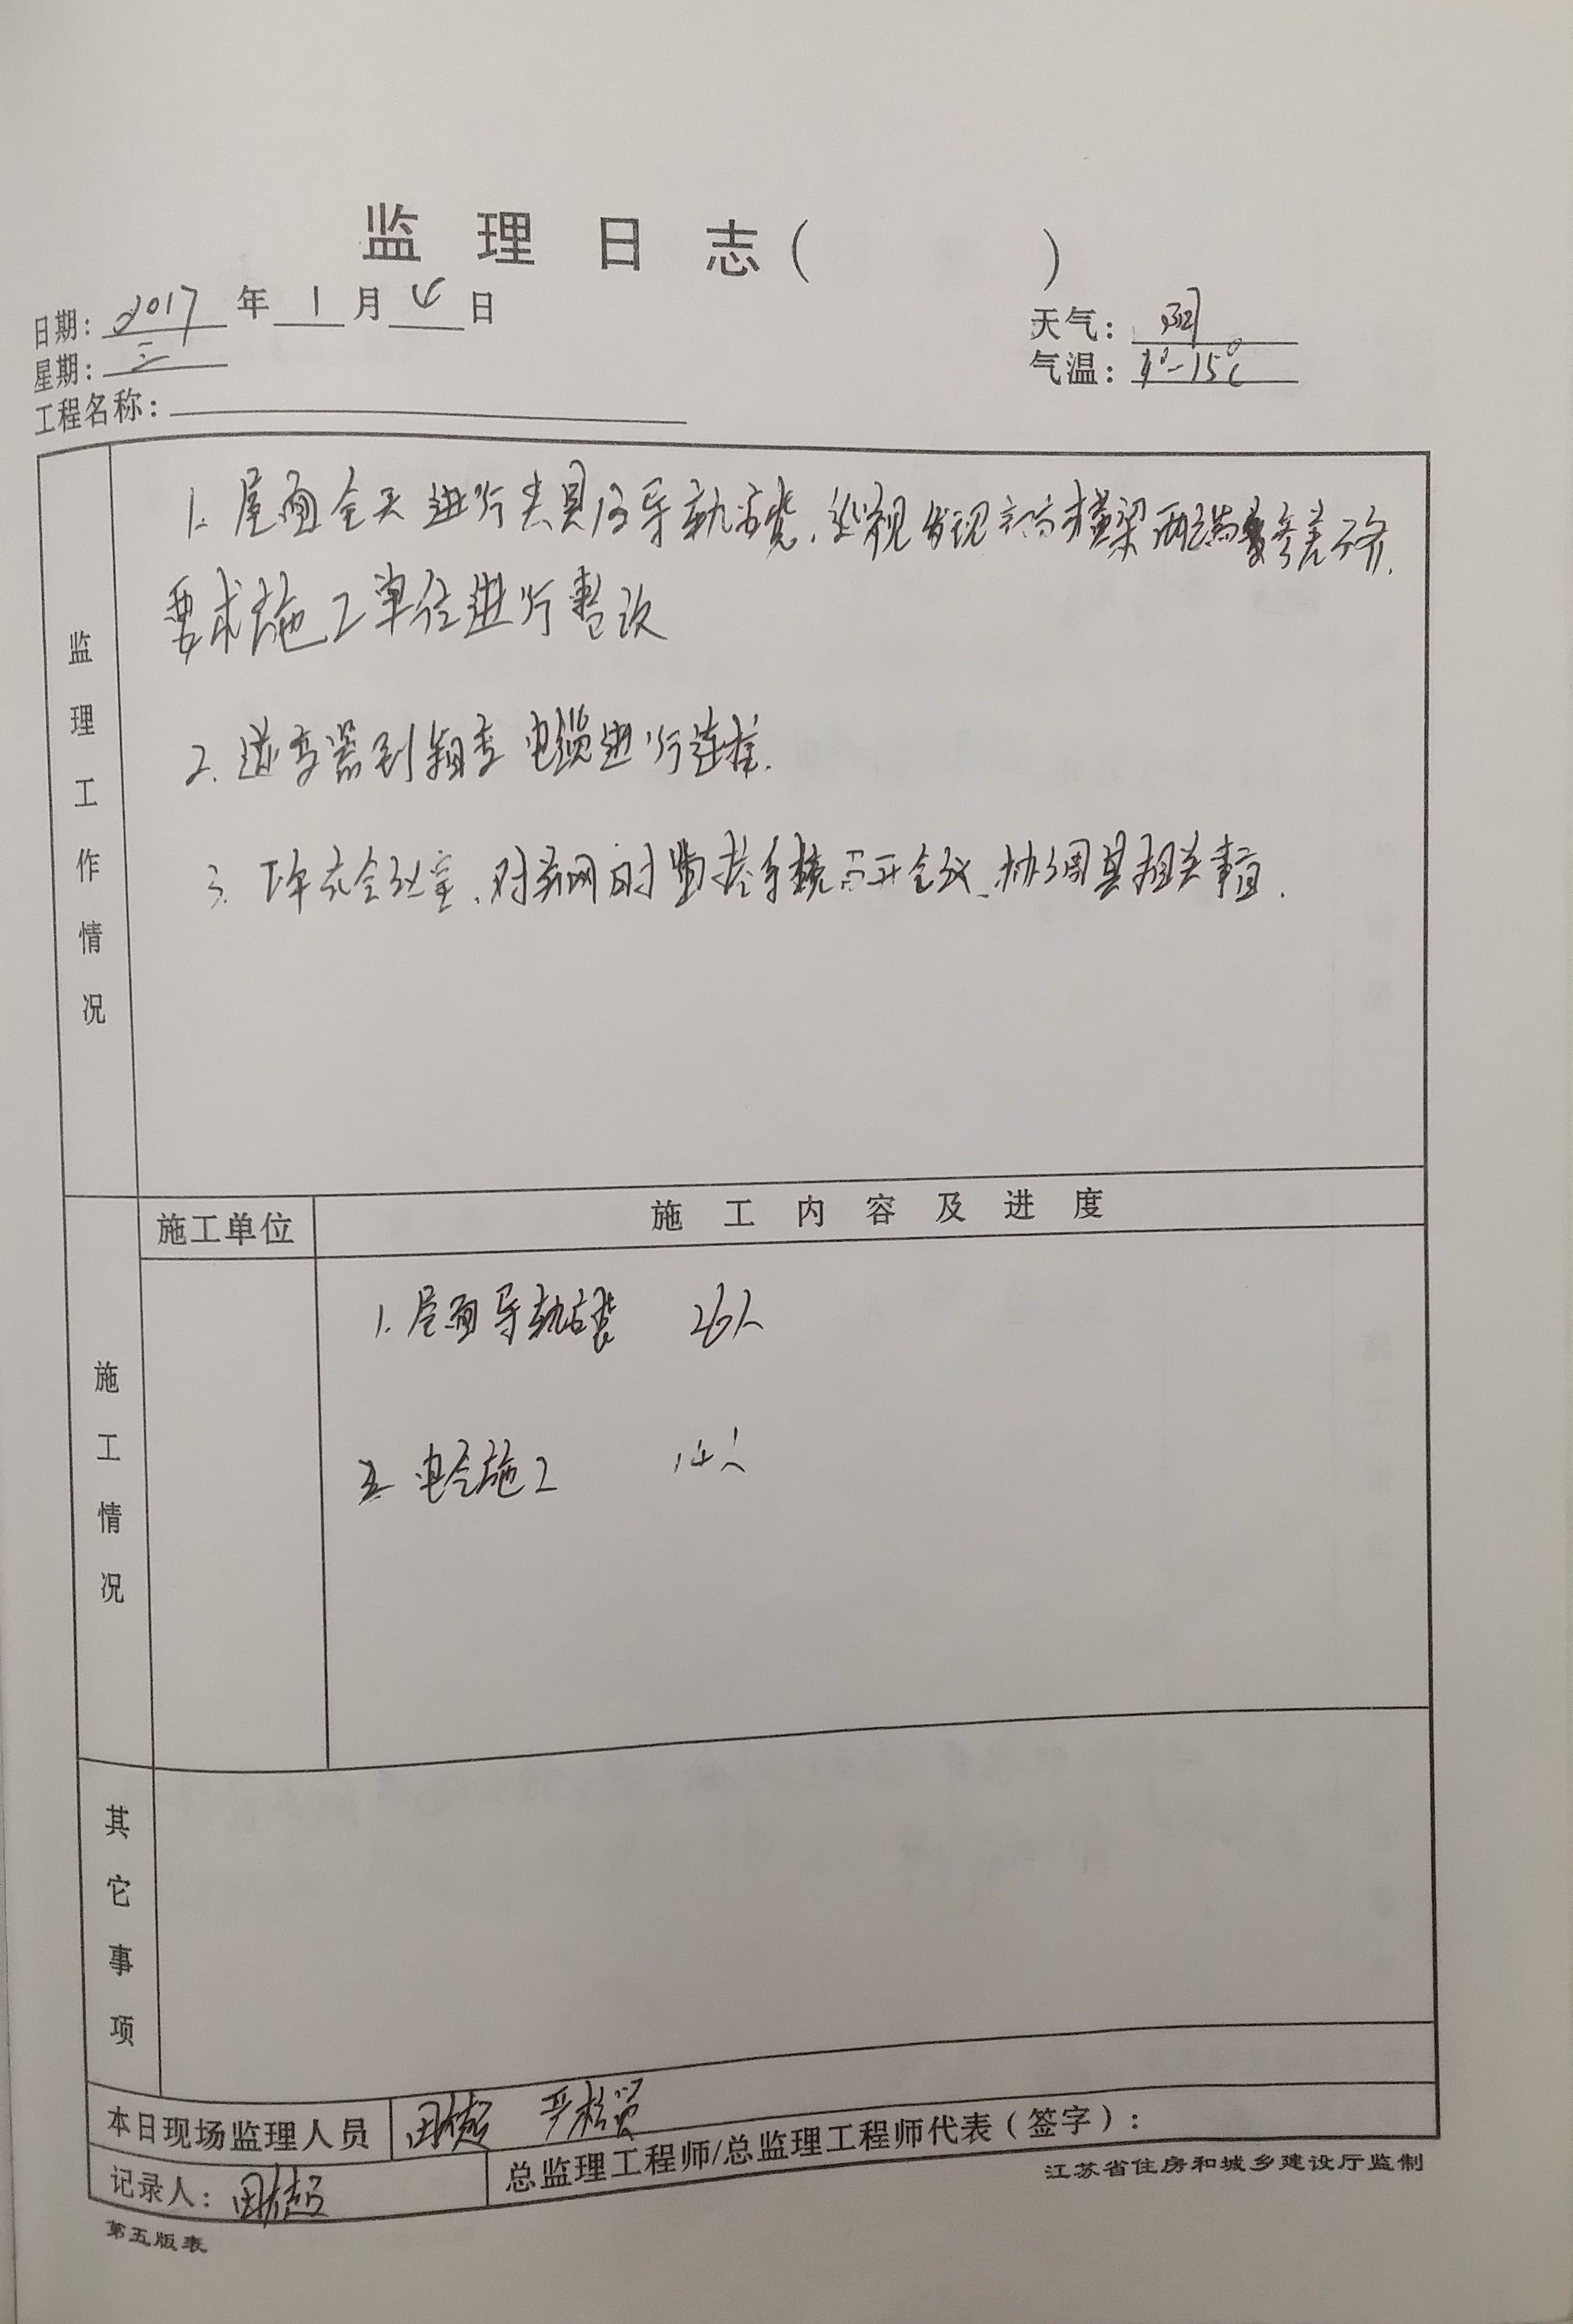 监理日志（ ）
日期：2017年1月4日
天气：阴
星期：三
气温：4°-15℃
工程名称：
监理工作情况
1. 屋面全天进行夹具及导轨安装，巡视发现 横梁两端 参差不齐，
要求施工单位进行整改
2. 逆变器到箱变电缆进行连接.
3. 下午在会议室，对并网时监控系统召开会议，协调其相关事宜.
施工情况
施工单位 施工内容及进度
1. 屋面导轨安装 26人
2. 电仓施工 14人
其它事项
本日现场监理人员 田超
记录人：田超 总监理工程师/总监理工程师代表（签字）：
江苏省住房和城乡建设厅监制
第五版表